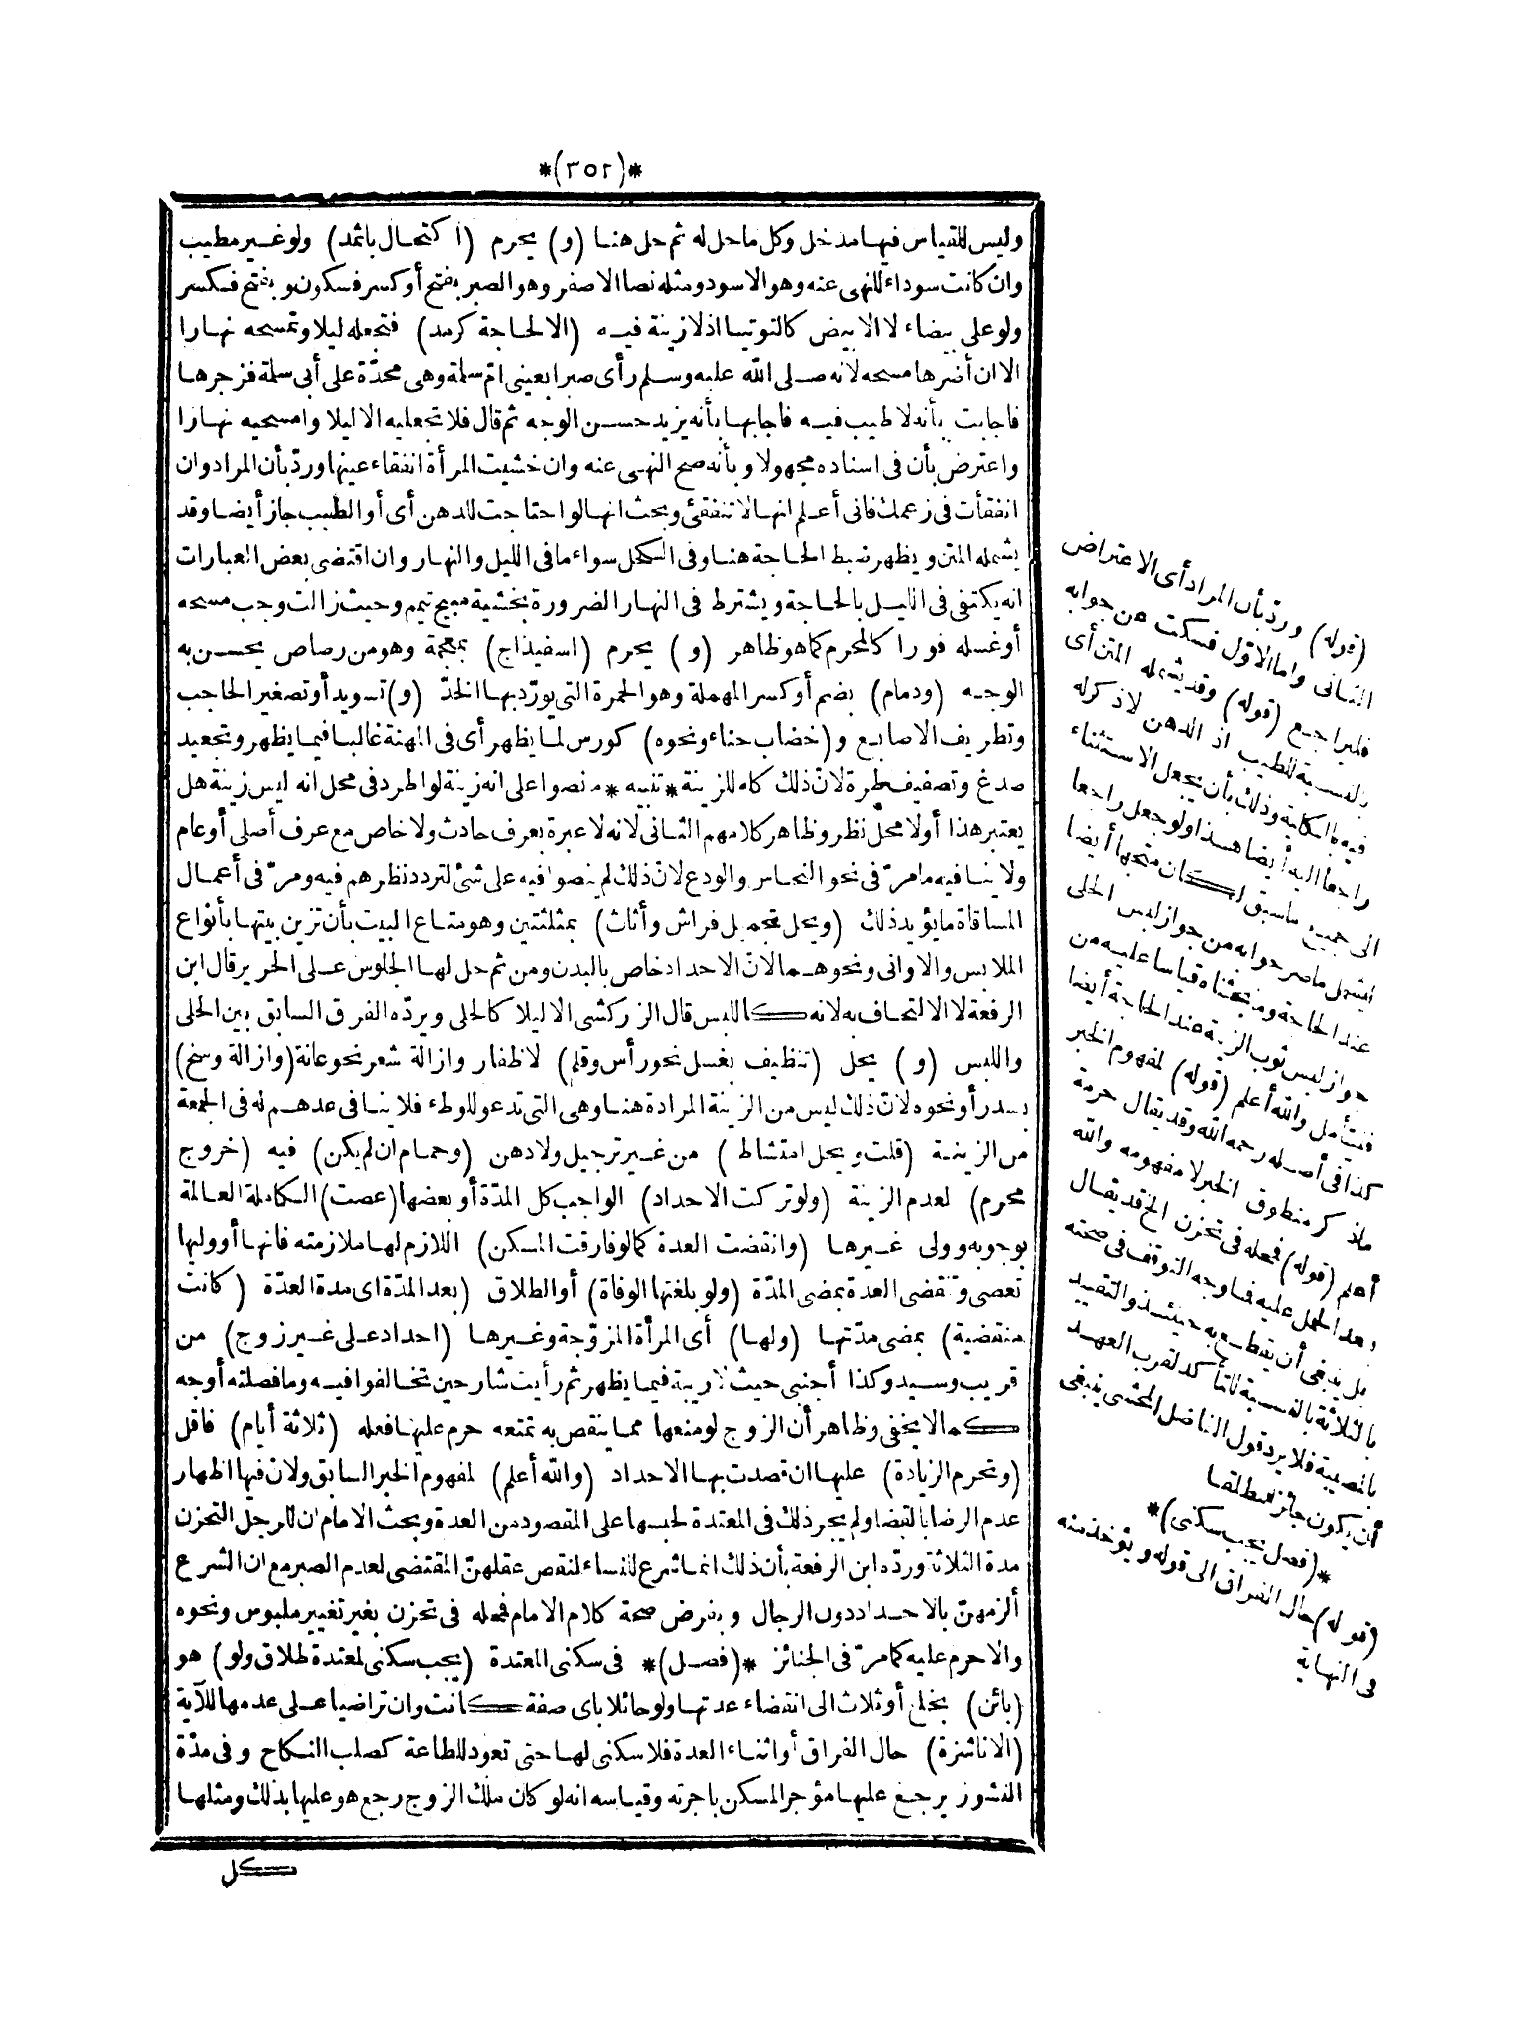 *(٣٥٢)*
وليس للقياس فيها مدخل وكل ما حل له ثم حل هنا (و) يحرم (اكتحال باثمد) ولو غير مطيب
وان كانت سوداء للنهى عنه وهو الاسود ومثله نصا الاصفر وهو الصبر بفتح أو كسر فسكون وبفتح فكسر
ولو على بيضاء لا الابيض كالتوتيا اذ لا زينة فيه (الا لحاجة كرمد) فتجعله ليلا وتمسحه نهارا
الا ان أضرها مسحه لانه صلى الله عليه وسلم رأى صبرا بعينى امّ سلمة وهى محدّة على أبى سلمة فزجرها
فاجابت بأنه لا طيب فيه فاجابها بأنه يزيد حسن الوجه ثم قال فلا تجعليه الا ليلا وامسحيه نهارا
واعترض بأن فى اسناده مجهولا وبأنه صح النهى عنه وان خشيت المرأة انفقاء عينها وردّ بأن المراد وان
انفقأت فى زعمك فانى أعلم انها لا تنفقئ وبحث انها لو احتاجت للدهن أى أو الطيب جاز أيضا وقد
يشمله المتن ويظهر ضبط الحاجة هنا وفى الكحل سواء ما فى الليل والنهار وان اقتضى بعض العبارات
انه يكتفى فى الليل بالحاجة ويشترط فى النهار الضرورة بخشية مبيح تيمم وحيث زالت وجب مسحه
أو غسله فورا كالمحرم كما هو ظاهر (و) يحرم (اسفيذاج) بمعجمة وهو من رصاص يحسن به
الوجه (ودمام) بضم أو كسر المهملة وهو الحمرة التى يورّد بها الخدّ (و) تسويد أو تصغير الحاجب
وتطريف الاصابع و (خضاب حناء ونحوه) كورس لما يظهر أى فى المهنة غالبا فيما يظهر وتجعيد
صدغ وتصفيف طرة لانّ ذلك كله للزينة * تنبيه * نصوا على انه زينة لو اطرد فى محل انه ليس زينة هل
يعتبر هذا أو لا محلّ نظر وظاهر كلامهم الثانى لانه لا عبرة بعرف حادث ولا خاص مع عرف أصلى أو عام
ولا ينافيه ما مرّ فى نحو النحاس والودع لانّ ذلك لم ينصوا فيه على شئ لتردد نظرهم فيه ومرّ فى أعمال
المساقاة ما يؤيد ذلك (ويحل تجميل فراش وأثاث) بمثلثتين وهو متاع البيت بأن تزين بيتها بأنواع
الملابس والاوانى ونحوهما لانّ الاحداد خاص بالبدن ومن ثم حل لها الجلوس على الحرير قال ابن
الرفعة لا الالتحاف به لانه كاللبس قال الزركشى الا ليلا كالحلى ويردّه الفرق السابق بين الحلى
واللبس (و) يحل (تنظيف بغسل نحو رأس وقلم) لاظفار وازالة شعر نحو عانة (وازالة وسخ)
بسدر أو نحوه لانّ ذلك ليس من الزينة المرادة هنا وهى التى تدعو للوطء فلا ينافى عدهم له فى الجمعة
من الزينة (قلت ويحل امتشاط) من غير ترجيل ولا دهن (وحمام ان لم يكن) فيه (خروج
محرم) لعدم الزينة (ولو تركت الاحداد) الواجب كل المدّة أو بعضها (عصت) الكاملة العالمة
بوجوبه وولى غيرها (وانقضت العدة كما لو فارقت المسكن) اللازم لها ملازمته فانها أو وليها
تعصى وتنقضى العدة بمضى المدّة (ولو بلغتها الوفاة) أو الطلاق (بعد المدّة اى مدة العدّة (كانت
منقضية) بمضى مدّتها (ولها) أى المرأة المزوّجة وغيرها (احداد على غير زوج) من
قريب وسيد وكذا أجنبى حيث لا ريبة فيما يظهر ثم رأيت شارحين تخالفوا فيه وما فصلته أوجه
كما لا يخفى وظاهر أن الزوج لو منعها مما ينقص به تمتعه حرم عليها فعله (ثلاثة أيام) فاقل
(وتحرم الزيادة) عليها ان قصدت بها الاحداد (والله أعلم) لمفهوم الخبر السابق ولان فيها اظهار
عدم الرضا بالقضا ولم يجر ذلك فى المعتدة لحبسها على المقصود من العدة وبحث الامام ان للرجل التحزن
مدة الثلاثة وردّه ابن الرفعة بأن ذلك انما شرع للنساء لنقص عقلهنّ المقتضى لعدم الصبر مع ان الشرع
ألزمهنّ بالاحداد دون الرجال وبفرض صحة كلام الامام فمحله فى تحزن بغير تغيير ملبوس ونحوه
والا حرم عليه كما مرّ فى الجنائز *(فصل)* فى سكنى المعتدة (يجب سكنى لمعتدة طلاق ولو) هو
(بائن) بخلع أو ثلاث الى انقضاء عدتها ولو حائلا باى صفة كانت وان تراضيا على عدمها للآية
(الا ناشزة) حال الفراق أو اثناء العدة فلا سكنى لها حتى تعود للطاعة كصلب النكاح وفى مدّة
النشوز يرجع عليها مؤجر المسكن باجرته وقياسه انه لو كان ملك الزوج رجع هو عليها بذلك ومثلها
كل
(قوله) وردّ بأن المراد أى الاعتراض
الثانى واما الاوّل فسكت عن جوابه
فليراجع (قوله) وقد يشمله المتن أى
بالنسبة للطيب اذ الدهن لا ذكر له
فيه بالكلية وذلك بأن يجعل الاستثناء
راجعا اليه أيضا هذا ولو جعل راجعا
الى جميع ما سبق لكان متجها أيضا
ليشمل ما صرحوا به من جواز لبس الحلى
عند الحاجة وما بحثناه قياسا عليه من
جواز لبس ثوب الزينة عند الحاجة أيضا
فليتأمل والله أعلم (قوله) لمفهوم الخبر
كذا فى أصله رحمه الله وقد يقال حرمة
ما ذكر منطوق الخبر لا مفهومه والله
أعلم (قوله) فمحله فى تحزن الخ قد يقال
بعد الحمل عليه فما وجه التوقف فى صحته
بل ينبغى أن يقطع به حينئذ والتقييد
بالثلاثة بالنسبة للتأكد لقرب العهد
بالمصيبة فلا يرد قول الفاضل المحشى ينبغى
أن يكون جائزا مطلقا
*(فصل يجب سكنى)*
(قوله) حال الفراق الى قوله ويؤخذ منه
فى النهاية